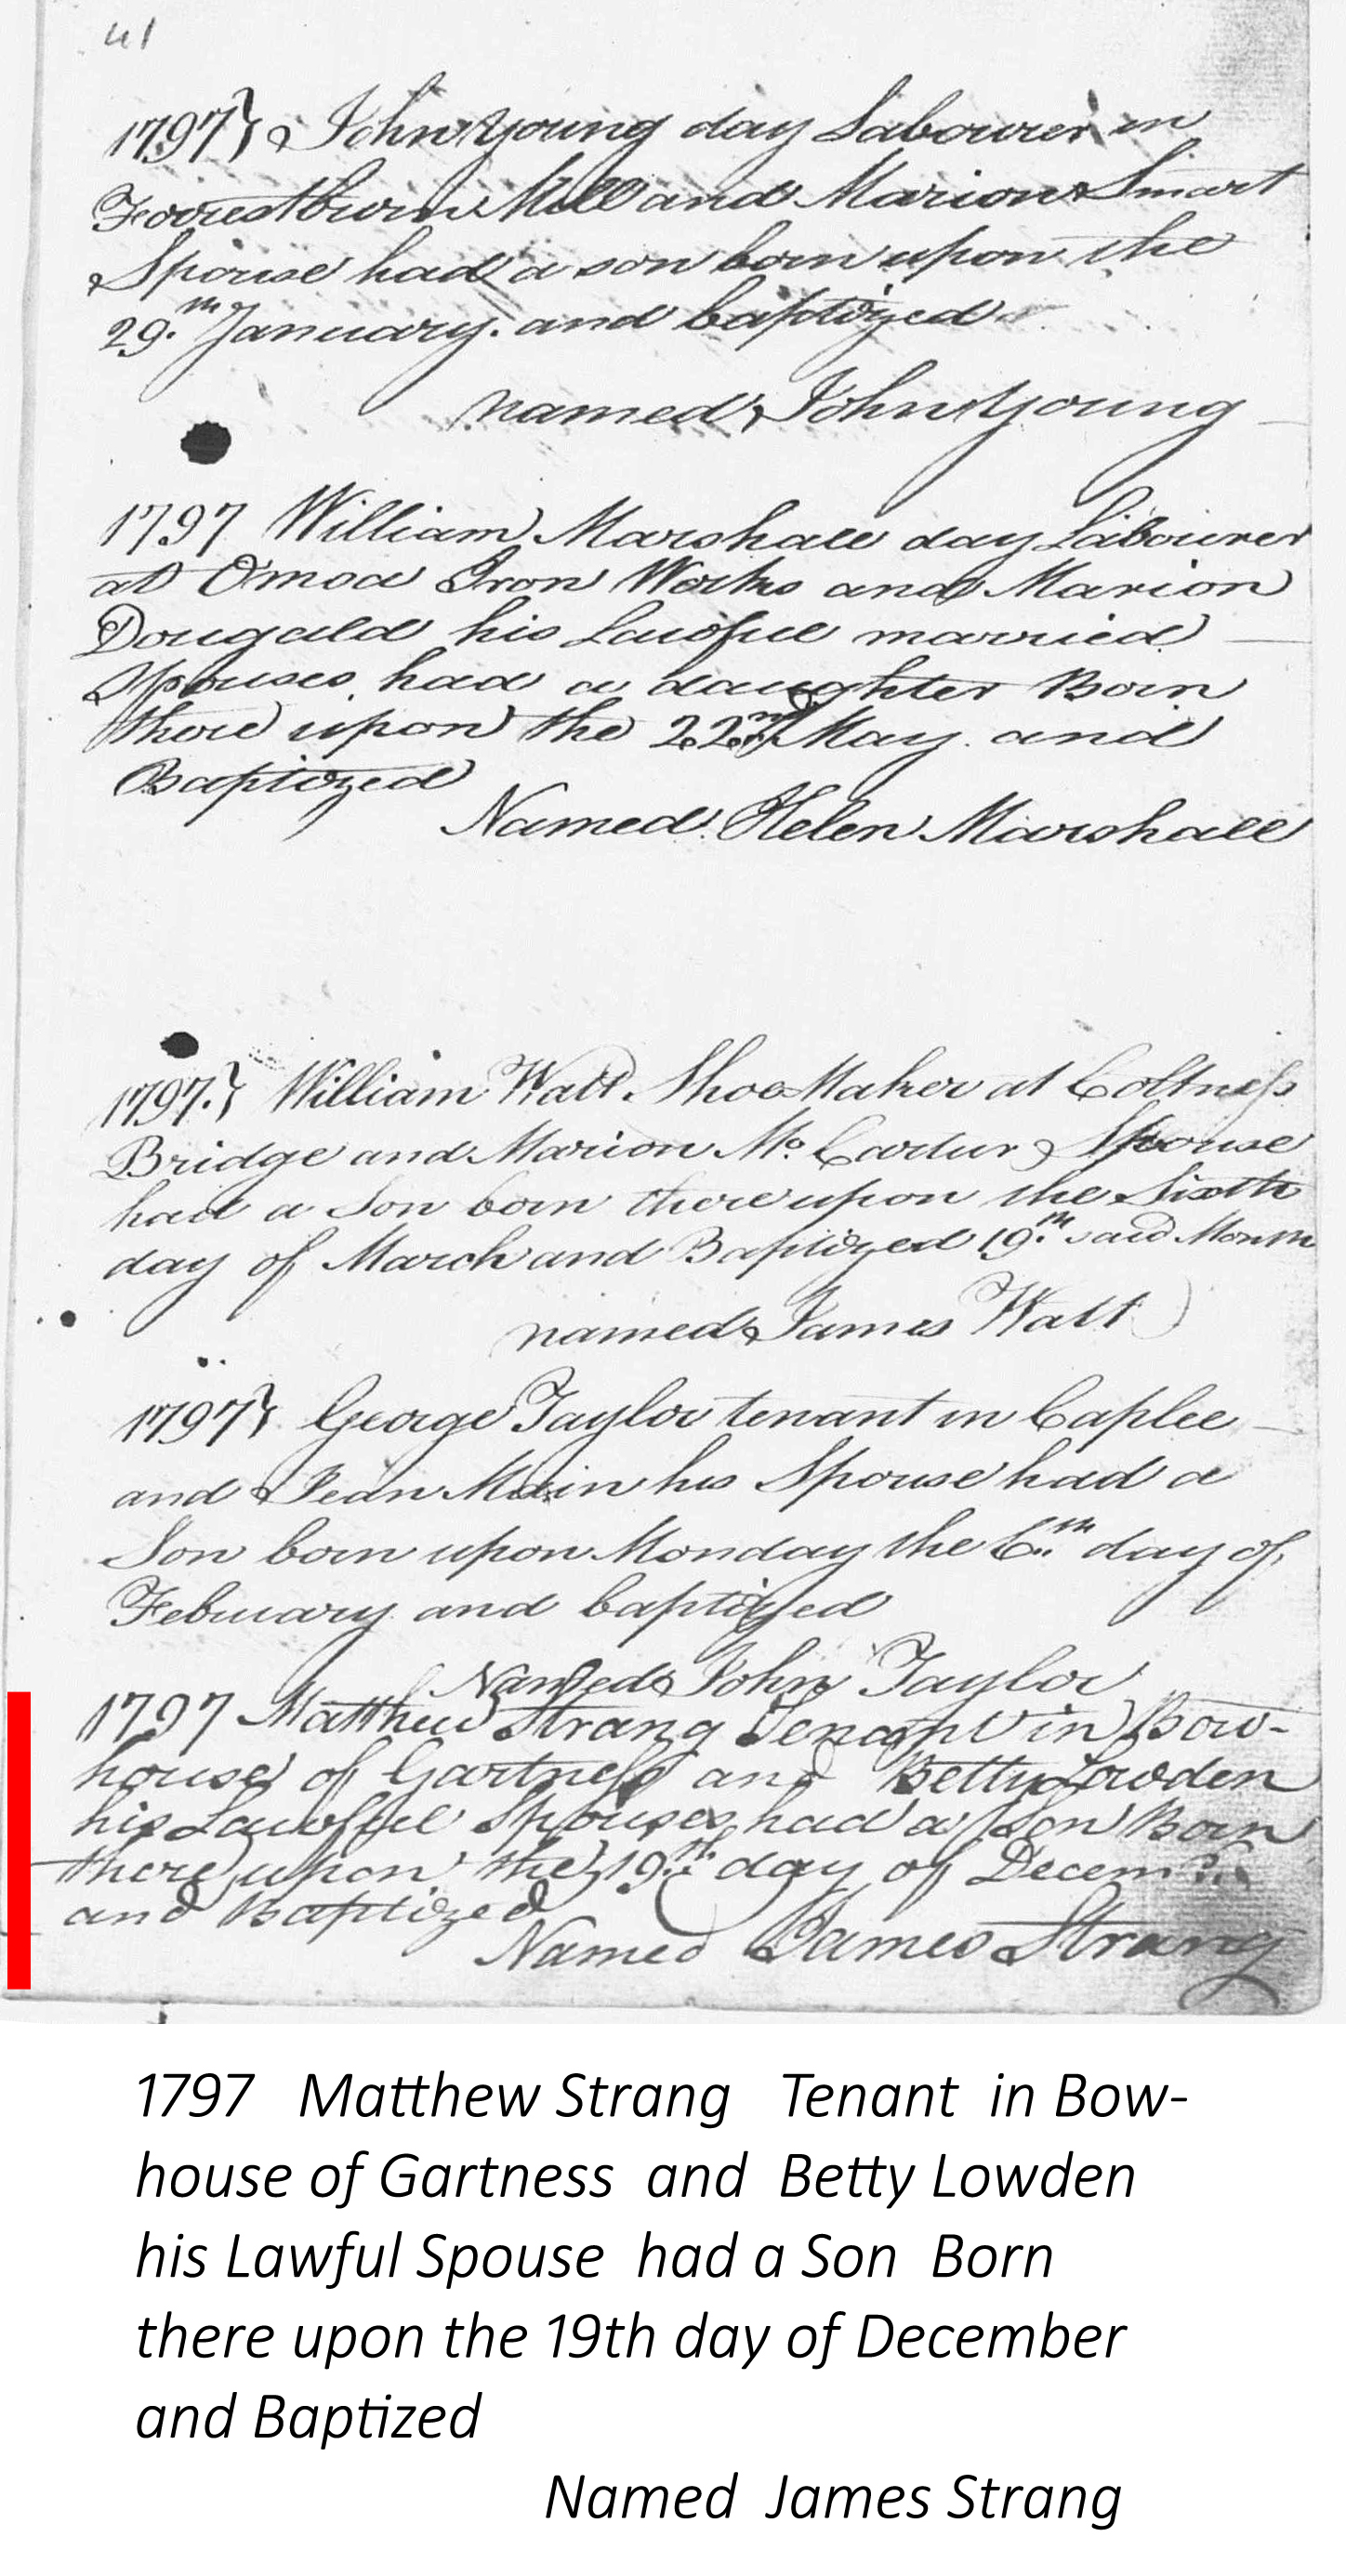 41
1797} John Young day Labourer in
Forrestburn Mill and Marion Smart
Spouse had a son born upon the
29.th January. and baptized
named John Young
1797 William Marshall day Labourer
at Omoa Iron Works and Marion
Dougald his Lawful married
Spouses had a daughter Born
there upon the 22nd May and
Baptized
Named Helen Marshall
1797.} William Watt Shoe Maker at Coltness
Bridge and Marion Mc Cartur Spouse
had a Son born there upon the Sixth
day of March and Baptized 19.th said Month
named James Watt
1797} George Taylor tenant in Caplee
and Jean Main his Spouse had a
Son born upon Monday the 6th day of
February and baptized
Named John Taylor
1797 Matthew Strang Tenant in Bow-
house of Gartness and Betty Lowden
his Lawfull Spouses had a Son Born
there upon the 19th day of Decemr.
and Baptized
Named James Strang
1797 Matthew Strang Tenant in Bow-
house of Gartness and Betty Lowden
his Lawful Spouse had a Son Born
there upon the 19th day of December
and Baptized
Named James Strang